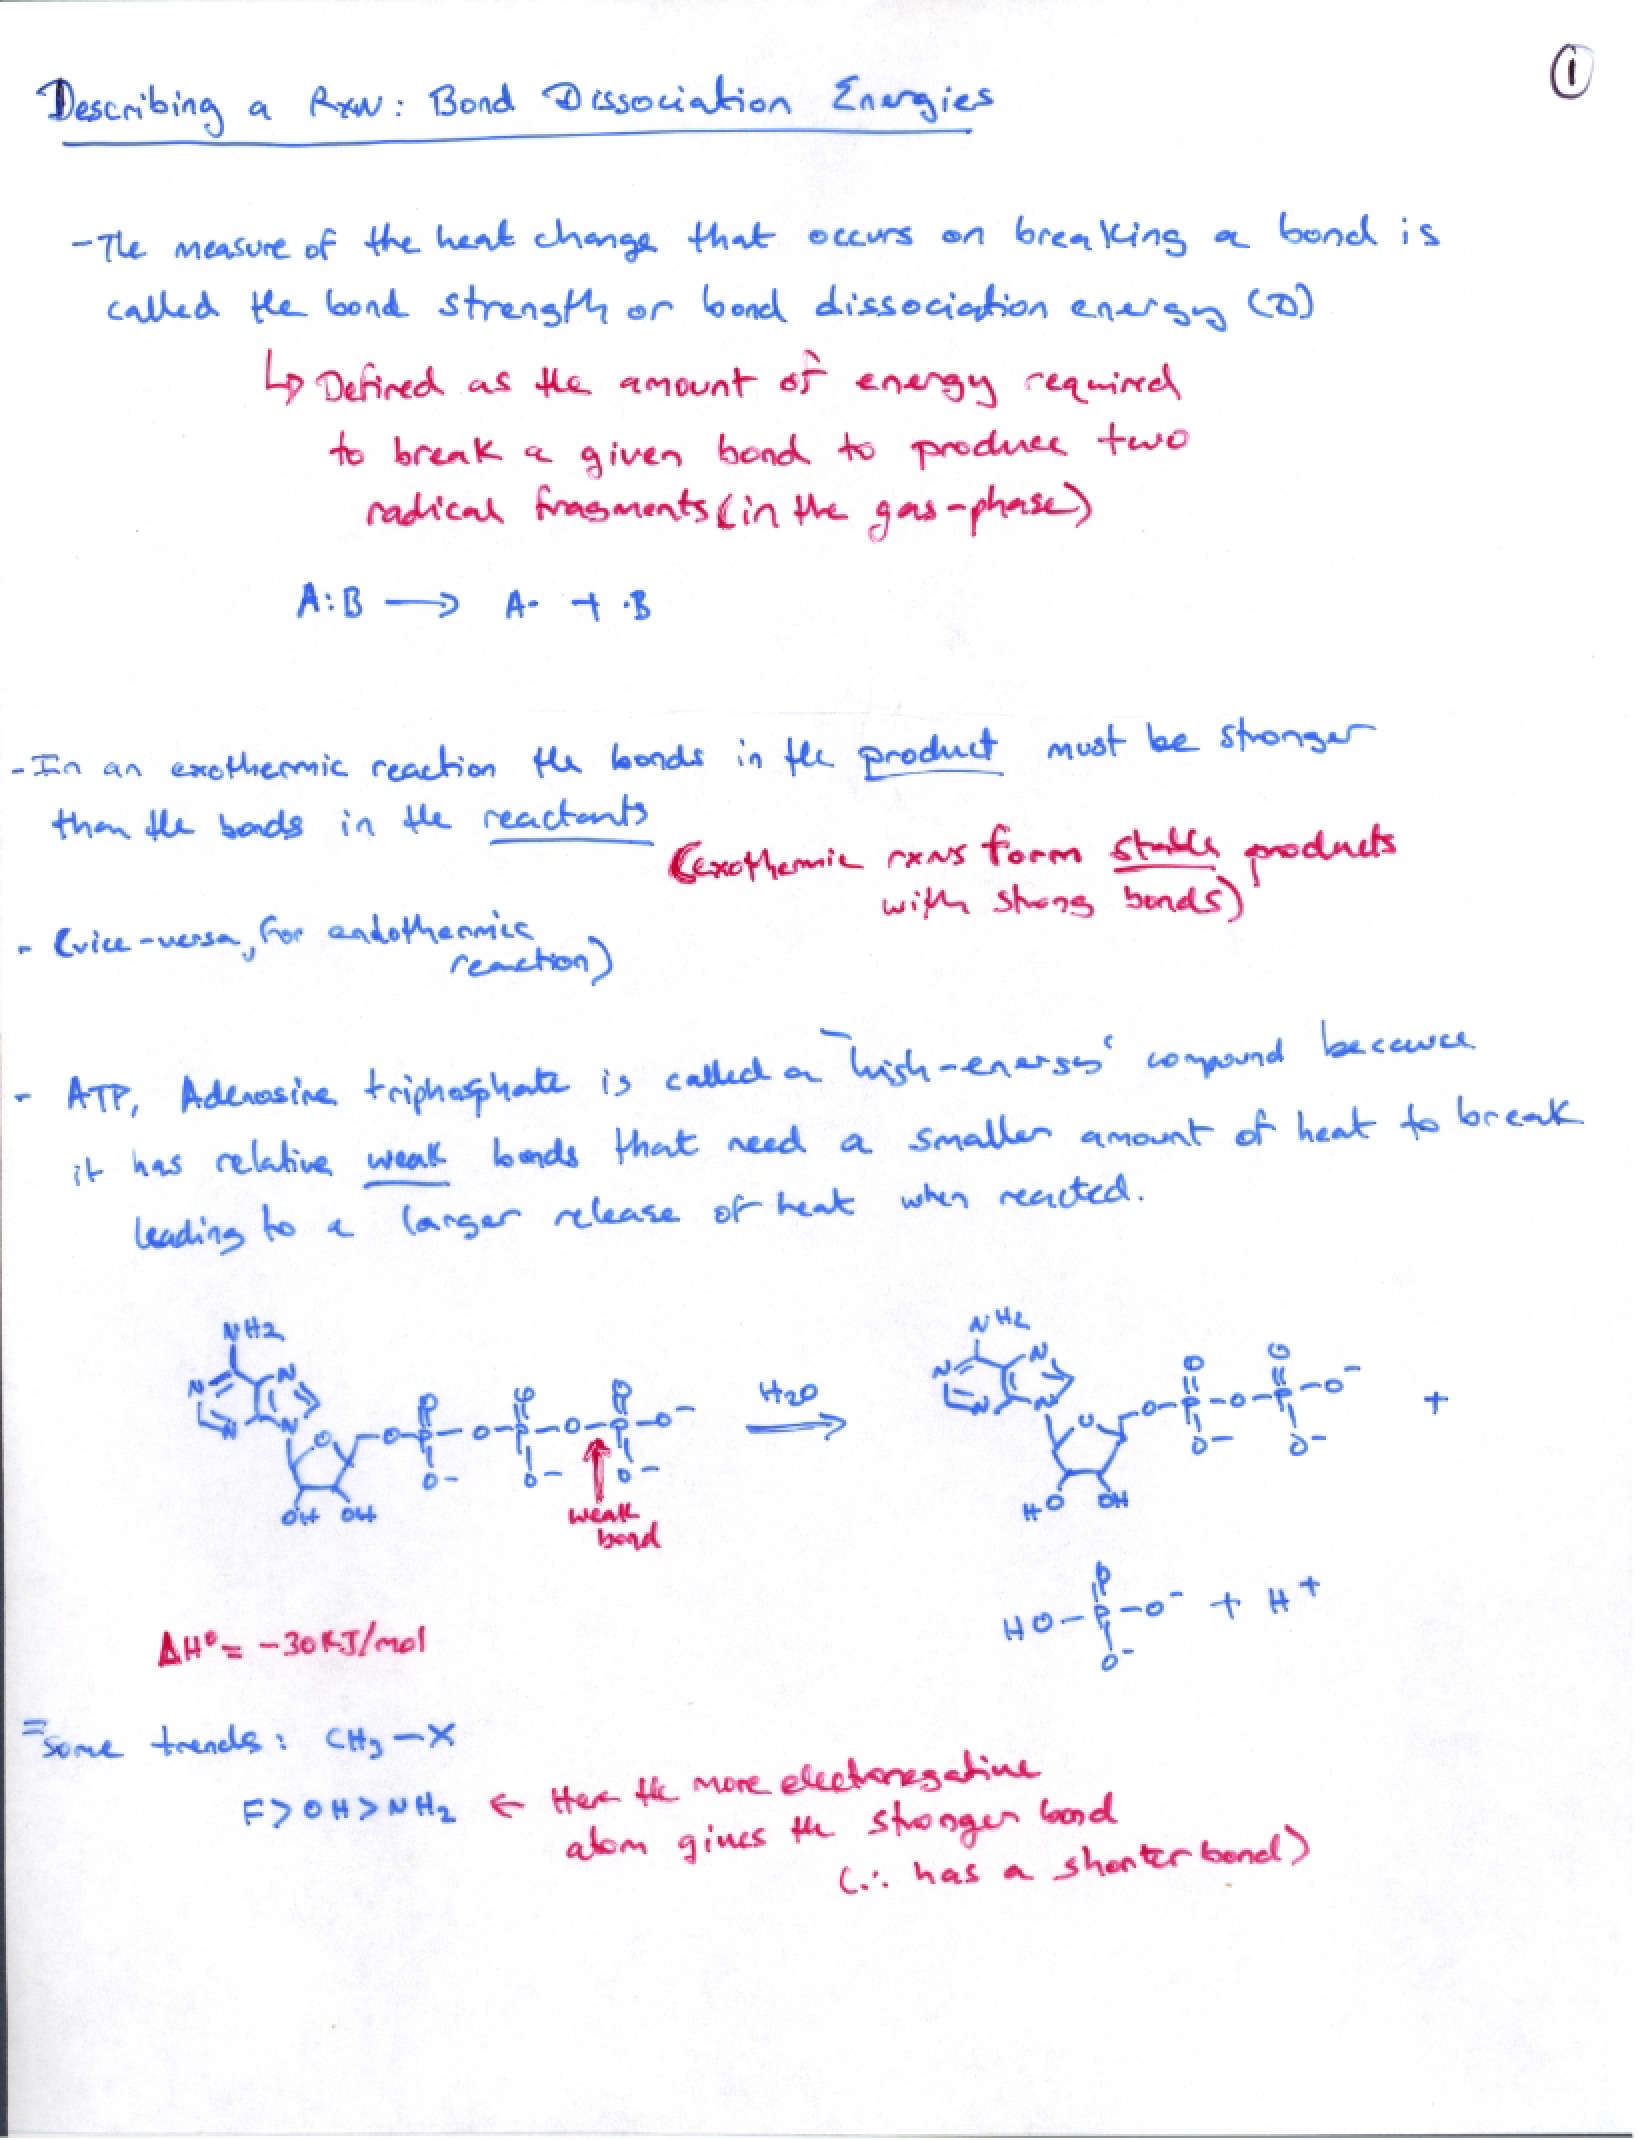 ①
Describing a Rxn: Bond Dissociation Energies
- The measure of the heat change that occurs on breaking a bond is
called the bond strength or bond dissociation energy (D)
↳ Defined as the amount of energy required
to break a given bond to produce two
radical fragments (in the gas-phase)
A:B ⟶ A· + ·B
- In an exothermic reaction the bonds in the product must be stronger
than the bonds in the reactants
(exothermic rxns form stable products
with strong bonds)
- (vice-versa, for endothermic
reaction)
- ATP, Adenosine triphosphate is called a "high-energy" compound because
it has relative weak bonds that need a smaller amount of heat to break
leading to a larger release of heat when reacted.
NH2 N N N N O O P O O- O P O O- O P O O- O-
OH OH
weak
bond
H2O
NH2 N N N N O O P O O- O P O O- O- +
HO OH
HO-P O O- O- + H+
ΔH° = -30KJ/mol
= some trends: CH3-X
F > OH > NH2 ← Here the more electronegative
atom gives the stronger bond
(∴ has a shorter bond)